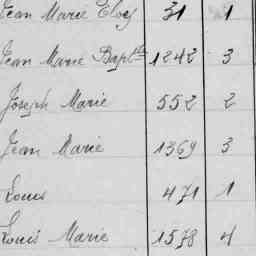 Jean Marie Eloy 31 1
Jean Marie Bapt.te 1242 3
Joseph Marie 552 2
Jean Marie 1369 3
Louis 471 1
Louis Marie 1578 4